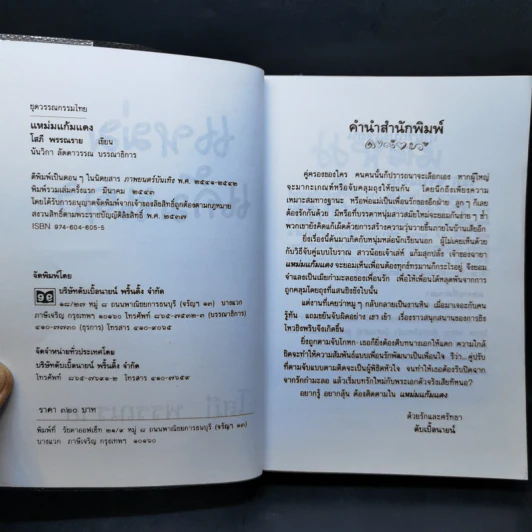 ชุดวรรณกรรมไทย
แหม่มแก้มแดง
โสภี พรรณราย เขียน
นันวิกา ลัดดาวรรณ บรรณาธิการ
ตีพิมพ์เป็นตอนๆ ในนิตยสาร ภาพยนตร์บันเทิง พ.ศ. ๒๕๔๑-๒๕๔๒
พิมพ์รวมเล่มครั้งแรก มีนาคม ๒๕๔๓
โดยได้รับการอนุญาตจัดพิมพ์จากเจ้าของลิขสิทธิ์ถูกต้องตามกฎหมาย
สงวนลิขสิทธิ์ตามพระราชบัญญัติลิขสิทธิ์ พ.ศ. ๒๕๓๗
ISBN 974-604-605-5
จัดพิมพ์โดย
บริษัทดับเบิ้ลนายน์ พริ้นติ้ง จำกัด
๑๘/๒๗ หมู่ ๘ ถนนพาณิชยการธนบุรี (จรัญฯ ๑๓) บางแวก
ภาษีเจริญ กรุงเทพฯ ๑๐๑๖๐
(บรรณาธิการ)
(ธุรการ) โทรสาร
จัดจำหน่ายทั่วประเทศโดย
บริษัทดับเบิ้ลนายน์ พริ้นติ้ง จำกัด
โทรศัพท์ โทรสาร
ราคา ๓๒๐ บาท
พิมพ์ที่ หมู่ ๘ ถนนพาณิชยการธนบุรี (จรัญฯ ๑๓)
บางแวก ภาษีเจริญ กรุงเทพฯ ๑๐๑๖๐
คำนำสำนักพิมพ์
คู่ครองของใคร คนคนนั้นก็ปรารถนาจะเลือกเอง หากผู้ใหญ่
จะมากะเกณฑ์หรือจับคลุมถุงให้ชนกัน โดยนึกถึงเพียงความ
เหมาะสมทางฐานะ หรือพ่อแม่เป็นเพื่อนรักของอีกฝ่าย ลูกๆ ก็เลย
ต้องรักกันด้วย มิหรือที่บรรดาหนุ่มสาวสมัยใหม่จะยอมกันง่ายๆ ซ้ำ
พวกเขายังคิดแก้เผ็ดด้วยการสร้างความวุ่นวายขึ้นภายในบ้านเสียอีก
ยิ่งเรื่องนี้ดันมาเกิดกับหนุ่มหล่อนักเรียนนอก ผู้ไม่เคยเห็นด้วย
กับวิธีจับคู่แบบโบราณ สาวน้อยเจ้าเล่ห์ แก้มสุกปลั่ง เจ้าของฉายา
แหม่มแก้มแดง จะยอมเห็นเพื่อนต้องทุกข์ทรมานก็กระไรอยู่ จึงยอม
จำแลงเป็นเมียกำมะลอของเพื่อนรัก เพื่อให้เพื่อนได้หลุดพ้นจากการ
ถูกคลุมโดยถุงที่แสนชิงชังใบนั้น
แต่งานที่เคยว่าหมูๆ กลับกลายเป็นงานหิน เมื่อมาเจอะกับคนรู้
ทัน แถมยังนับจับผิดอย่าง เฮา เย้า เรื่องราวสนุกสนานของการชิง
ไหวชิงพริบจึงเกิดขึ้น
ยิ่งถูกตามจับโกหก เธอก็ยิ่งต้องตีบทนางเอกให้แตก ความใกล้
ชิดจะทำให้ความสัมพันธ์แบบเพื่อนรักพัฒนาเป็นเพื่อนใจ รึว่า...คู่ปรับ
ที่ตามจับแบบตามติดจะเป็นผู้พิชิตหัวใจ จนทำให้เธอต้องรีบปิดฉาก
จากรักกำมะลอ แล้วเริ่มบทรักใหม่กับพระเอกตัวจริงเสียทีหนอ?
อยากรู้ อยากลุ้น ต้องติดตามใน แหม่มแก้มแดง
ด้วยรักและศรัทธา
ดับเบิ้ลนายน์